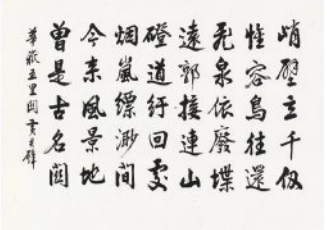 峭壁立千仞
惟容鳥往還
飛泉依廢堞
遠郭接連山
磴道紆回處
烟嵐縹渺間
今来風景地
曾是古名關
華嶽五里關 黄君璧